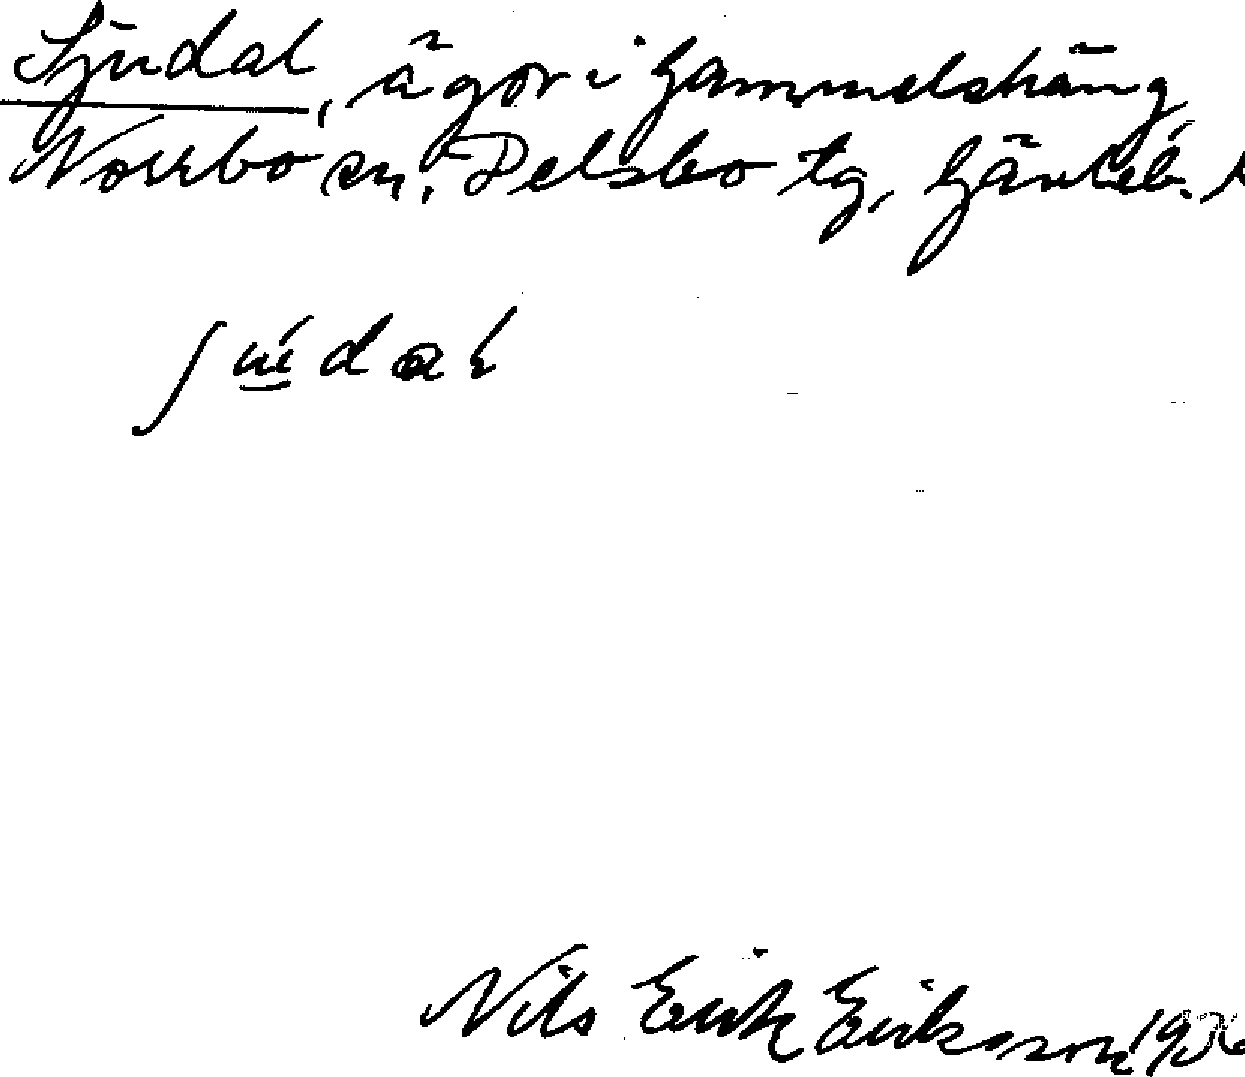 Sjudal, ägor i Gammelshäng,
Norrbo sn, Delsbo tg, Gävleb. l
ʃʉ́dal
Nils Erik Eriksson 1936